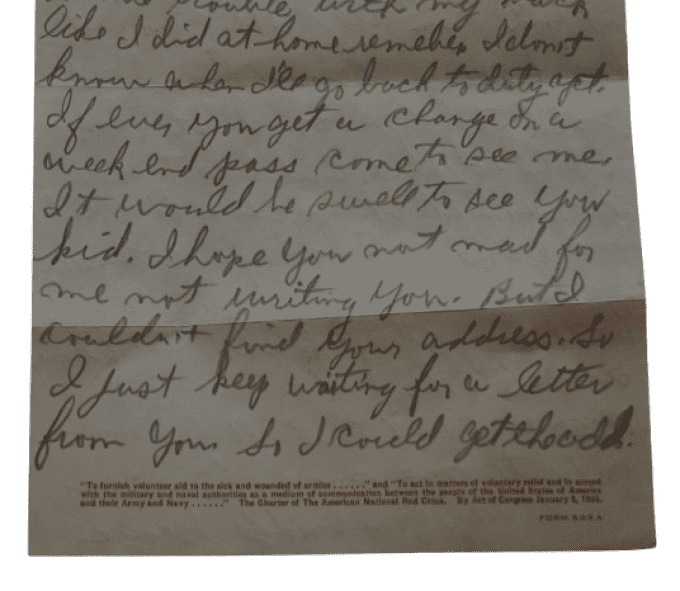 trouble with my
like I did at home remeber, I don't
know when I'll go back to duty yet.
If ever you get a change on a
week end pass come to see me,
It would be swell to see you
kid. I hope you not mad for
me not writing you. But I
couldn't find your address. So
I just keep waiting for a letter
from you so I could get the add.
"To furnish volunteer aid to the sick and wounded of armies ......" and "To act in matters of voluntary relief and in accord
with the military and naval authorities as a medium of communication between the people of the United States of America
and their Army and Navy ......" The Charter of The American National Red Cross. By Act of Congress January 5, 1905.
FORM 539 A